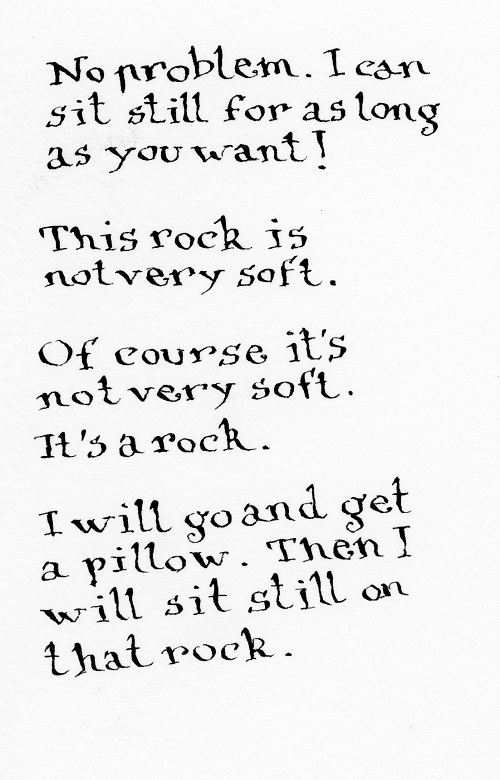 No problem. I can
sit still for as long
as you want!
This rock is
not very soft.
Of course it's
not very soft.
It's a rock.
I will go and get
a pillow. Then I
will sit still on
that rock.